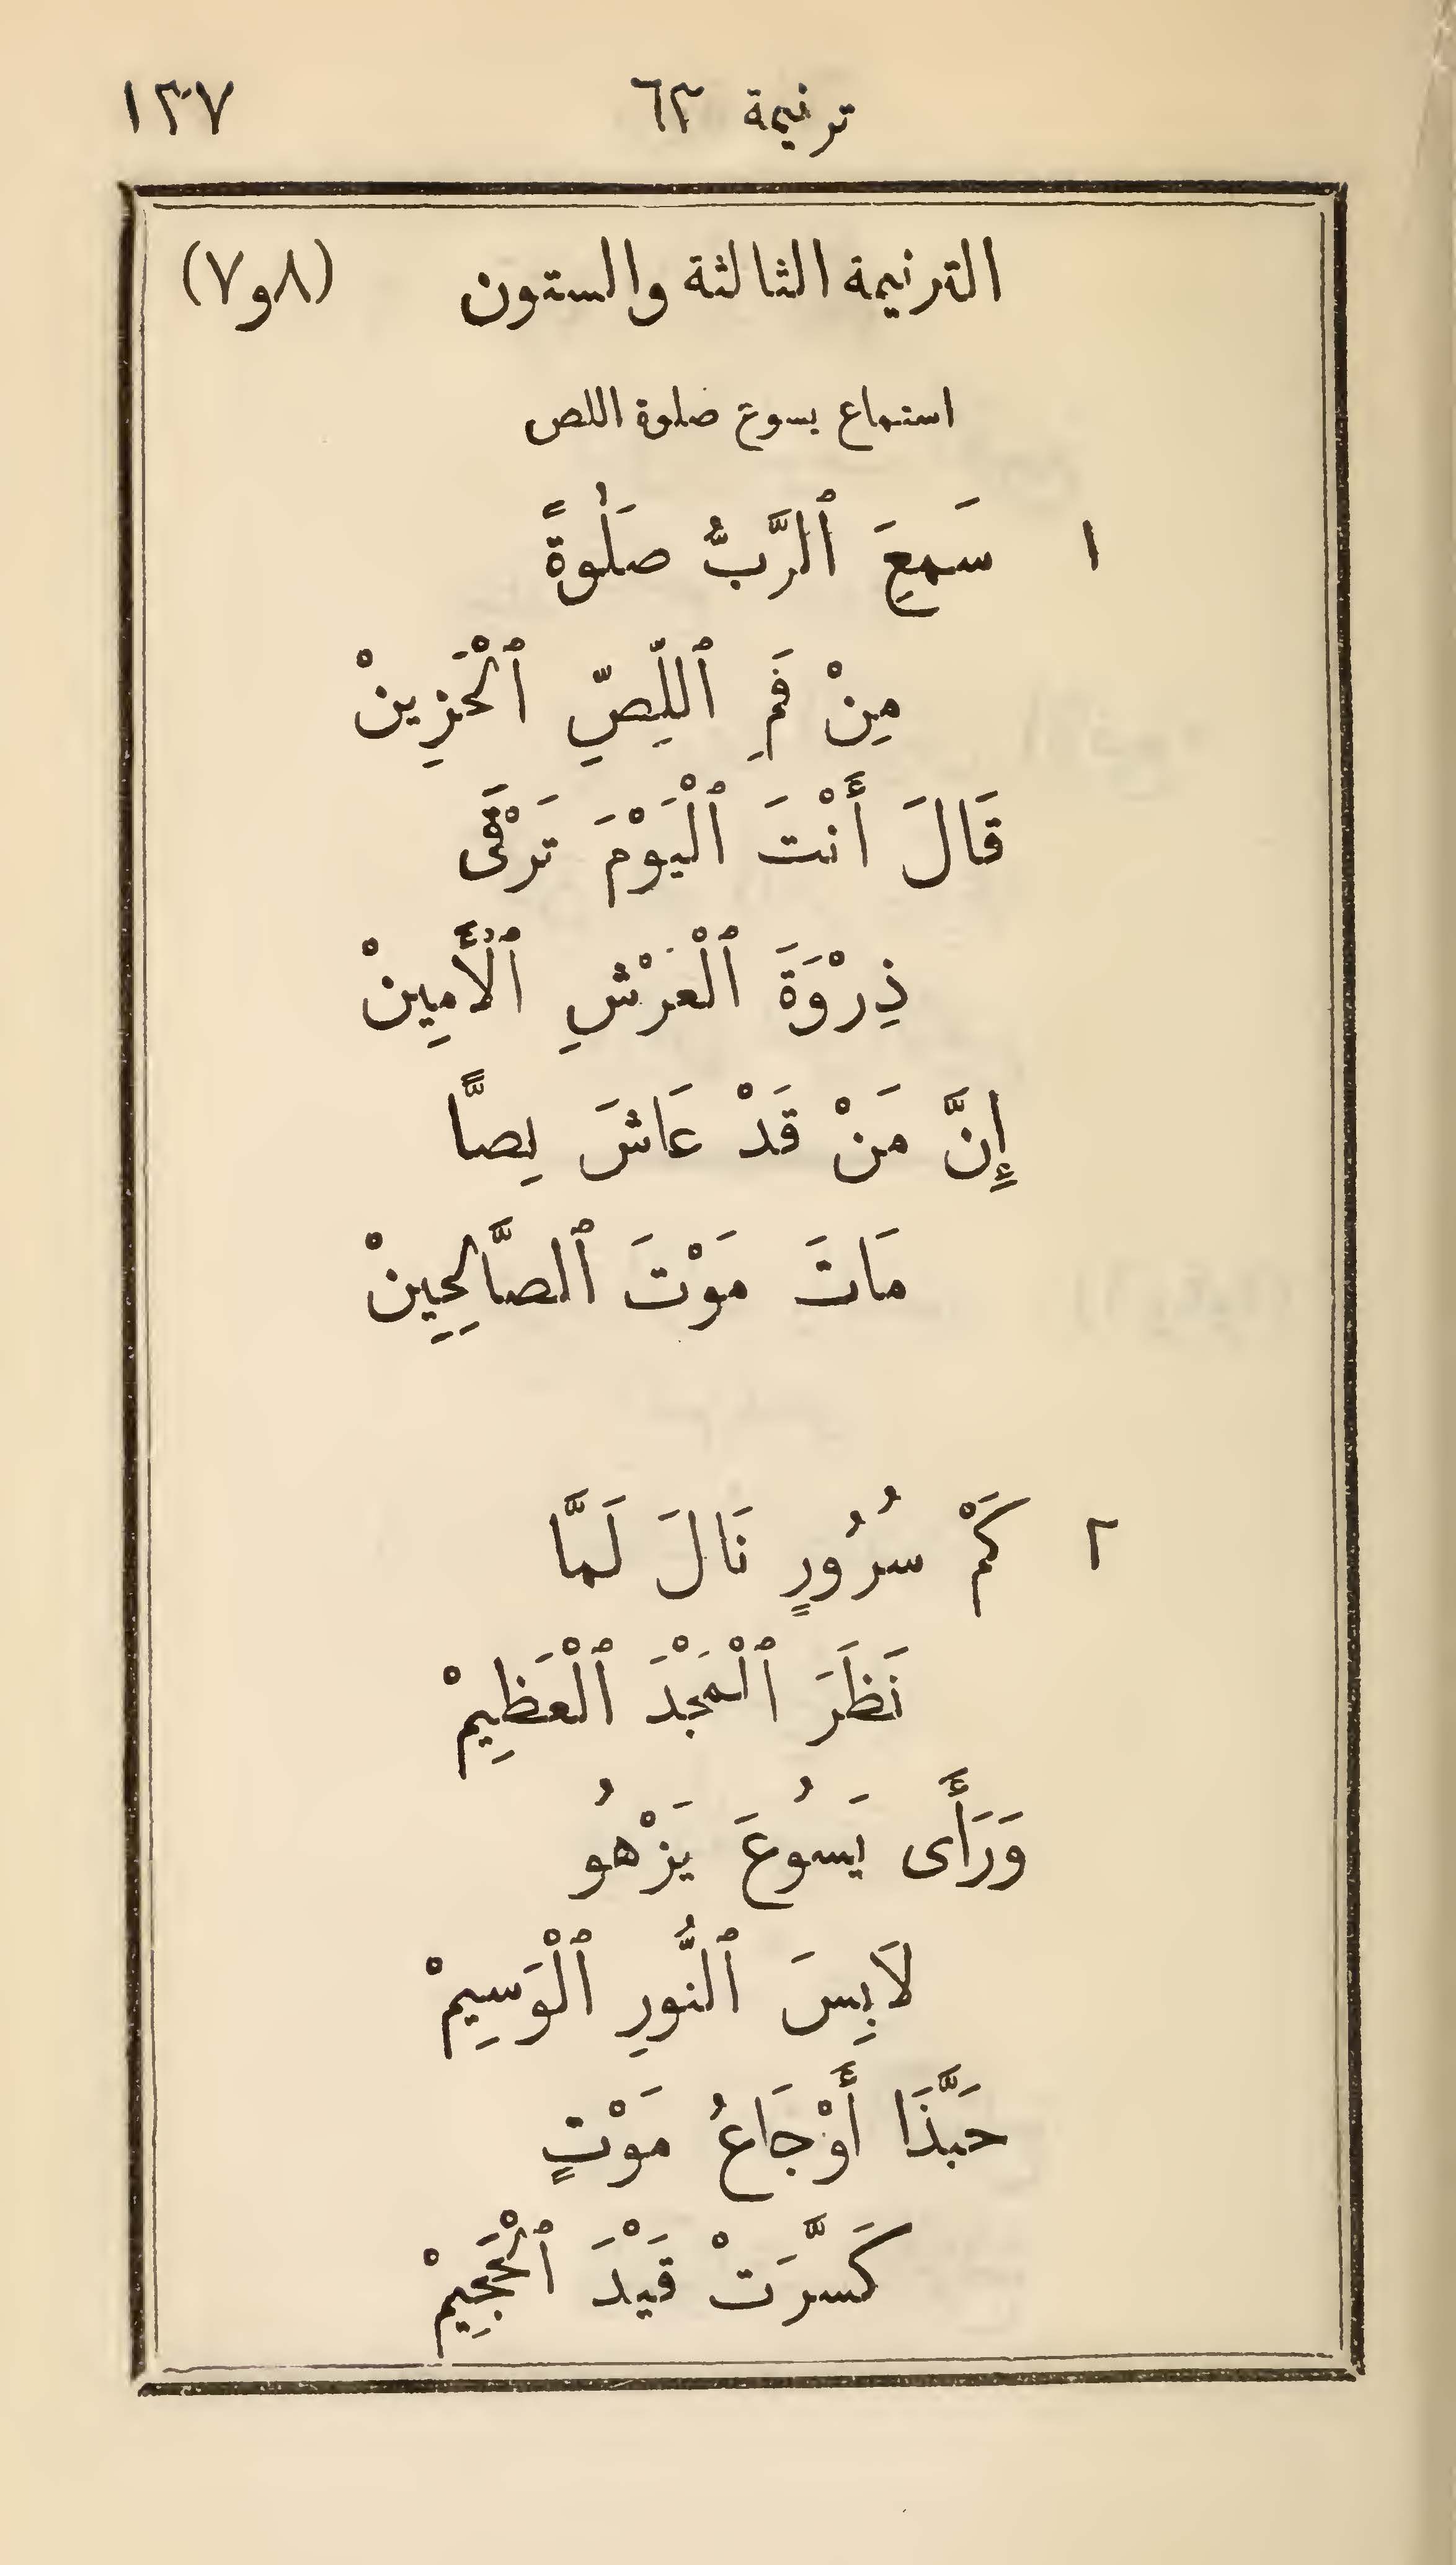 ترنيمة ٦٣ ١٣٧
الترنيمة الثالثة والستون (٨و٧)
استماع يسوع صلوة اللص
١ سَمِعَ ٱلرَّبُّ صَلٰوةً
مِنْ فَمِ ٱللِّصِّ ٱلْحَزِينْ
قَالَ أَنْتَ ٱلْيَوْمَ تَرْقَى
ذِرْوَةَ ٱلْعَرْشِ ٱلْأَمِينْ
إِنَّ مَنْ قَدْ عَاشَ لِصًّا
مَاتَ مَوْتَ ٱلصَّالِحِينْ
٢ كَمْ سُرُورٍ نَالَ لَمَّا
نَظَرَ ٱلْمَجْدَ ٱلْعَظِيمْ
وَرَأَى يَسُوعَ يَزْهُو
لَابِسَ ٱلنُّورِ ٱلْوَسِيمْ
حَبَّذَا أَوْجَاعُ مَوْتٍ
كَسَّرَتْ قَيْدَ ٱلْجَحِيمْ